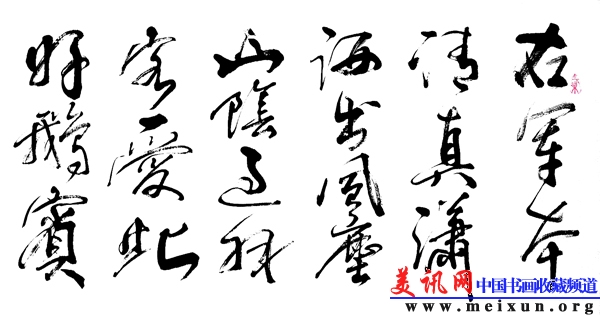 右軍本
清真瀟
洒出風塵
山陰過羽
客愛此
好鵝賓
美讯网 中国书画收藏频道
www.meixun.org